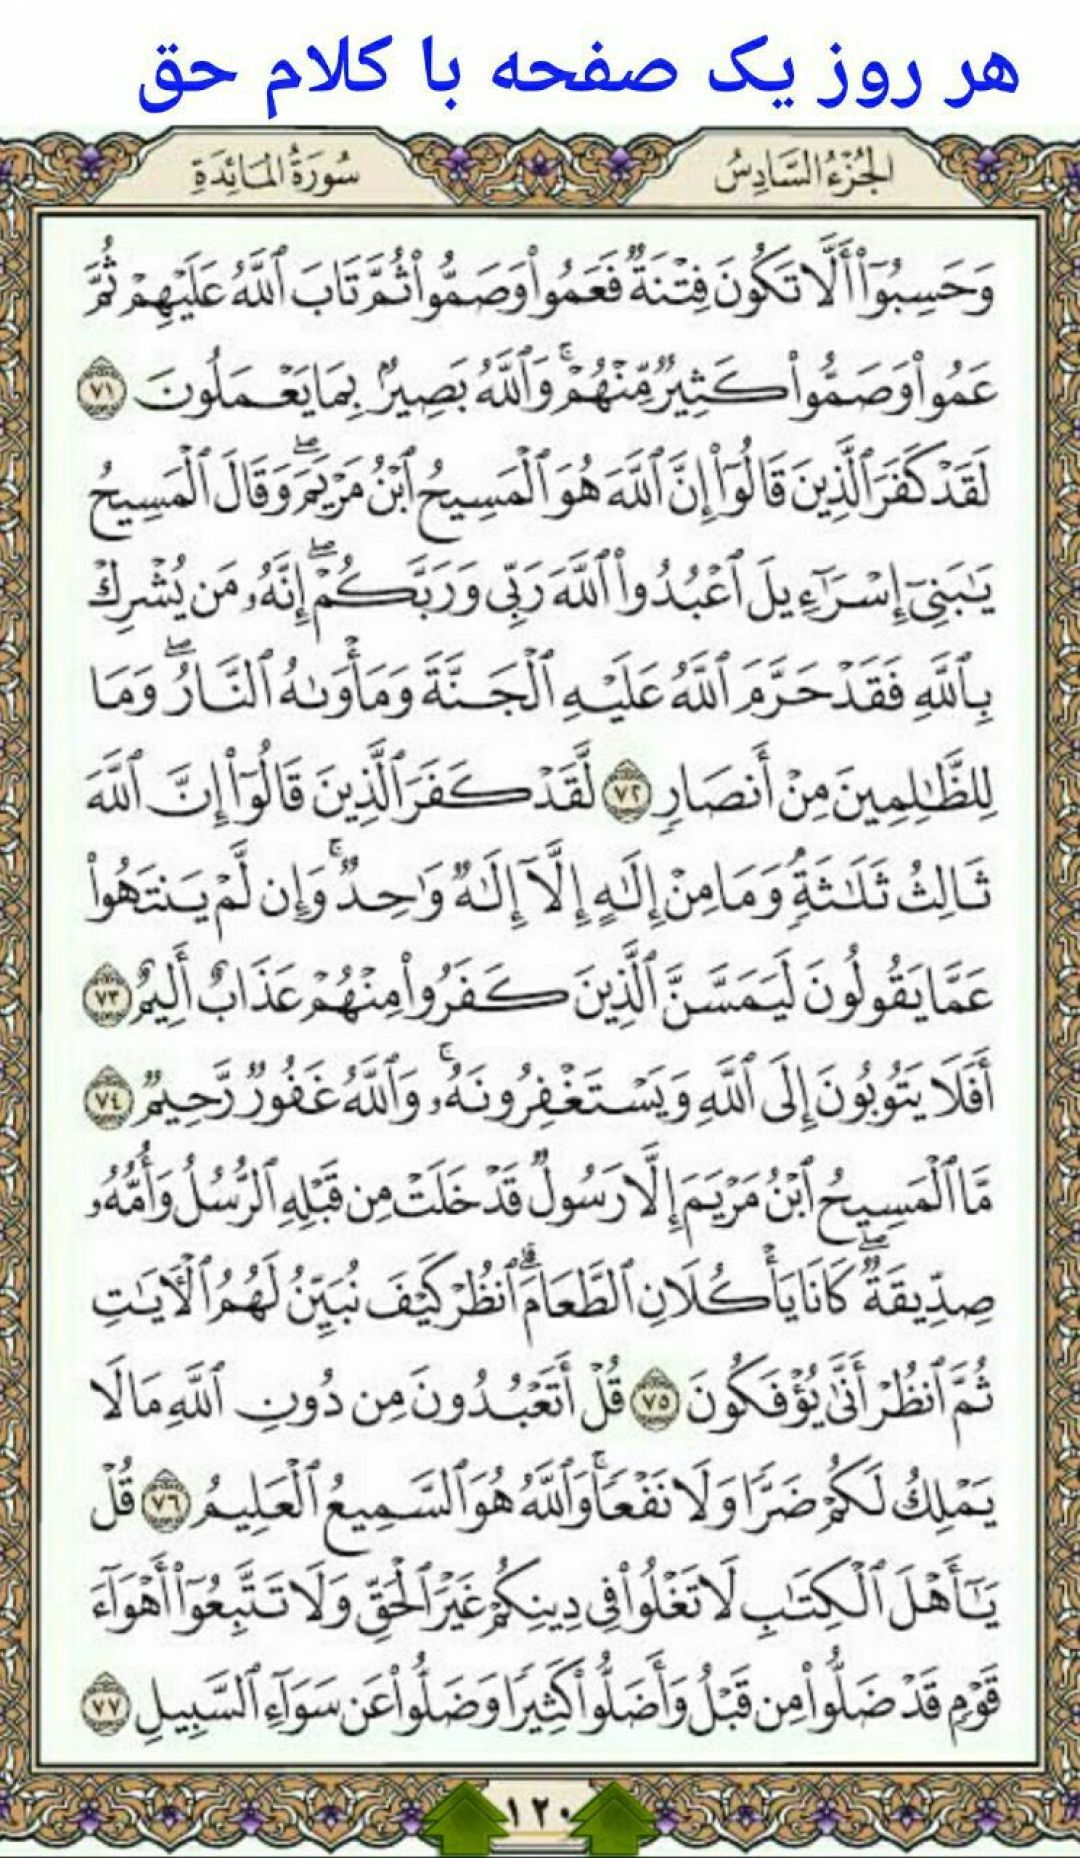 هر روز یک صفحه با کلام حق
الجُزْءُ السَّادِسُ
سُورَةُ المَائِدَةِ
وَحَسِبُوٓا۟ أَلَّا تَكُونَ فِتْنَةٌ فَعَمُوا۟ وَصَمُّوا۟ ثُمَّ تَابَ ٱللَّهُ عَلَيْهِمْ ثُمَّ
عَمُوا۟ وَصَمُّوا۟ كَثِيرٌ مِّنْهُمْ ۚ وَٱللَّهُ بَصِيرٌۢ بِمَا يَعْمَلُونَ ٧١
لَقَدْ كَفَرَ ٱلَّذِينَ قَالُوٓا۟ إِنَّ ٱللَّهَ هُوَ ٱلْمَسِيحُ ٱبْنُ مَرْيَمَ ۖ وَقَالَ ٱلْمَسِيحُ
يَٰبَنِىٓ إِسْرَٰٓءِيلَ ٱعْبُدُوا۟ ٱللَّهَ رَبِّى وَرَبَّكُمْ ۖ إِنَّهُۥ مَن يُشْرِكْ
بِٱللَّهِ فَقَدْ حَرَّمَ ٱللَّهُ عَلَيْهِ ٱلْجَنَّةَ وَمَأْوَىٰهُ ٱلنَّارُ ۖ وَمَا
لِلظَّٰلِمِينَ مِنْ أَنصَارٍ ٧٢ لَّقَدْ كَفَرَ ٱلَّذِينَ قَالُوٓا۟ إِنَّ ٱللَّهَ
ثَالِثُ ثَلَٰثَةٍ ۘ وَمَا مِنْ إِلَٰهٍ إِلَّآ إِلَٰهٌ وَٰحِدٌ ۚ وَإِن لَّمْ يَنتَهُوا۟
عَمَّا يَقُولُونَ لَيَمَسَّنَّ ٱلَّذِينَ كَفَرُوا۟ مِنْهُمْ عَذَابٌ أَلِيمٌ ٧٣
أَفَلَا يَتُوبُونَ إِلَى ٱللَّهِ وَيَسْتَغْفِرُونَهُۥ ۚ وَٱللَّهُ غَفُورٌ رَّحِيمٌ ٧٤
مَّا ٱلْمَسِيحُ ٱبْنُ مَرْيَمَ إِلَّا رَسُولٌ قَدْ خَلَتْ مِن قَبْلِهِ ٱلرُّسُلُ وَأُمُّهُۥ
صِدِّيقَةٌ ۖ كَانَا يَأْكُلَانِ ٱلطَّعَامَ ۗ ٱنظُرْ كَيْفَ نُبَيِّنُ لَهُمُ ٱلْءَايَٰتِ
ثُمَّ ٱنظُرْ أَنَّىٰ يُؤْفَكُونَ ٧٥ قُلْ أَتَعْبُدُونَ مِن دُونِ ٱللَّهِ مَا لَا
يَمْلِكُ لَكُمْ ضَرًّا وَلَا نَفْعًا ۚ وَٱللَّهُ هُوَ ٱلسَّمِيعُ ٱلْعَلِيمُ ٧٦ قُلْ
يَٰٓأَهْلَ ٱلْكِتَٰبِ لَا تَغْلُوا۟ فِى دِينِكُمْ غَيْرَ ٱلْحَقِّ وَلَا تَتَّبِعُوٓا۟ أَهْوَآءَ
قَوْمٍ قَدْ ضَلُّوا۟ مِن قَبْلُ وَأَضَلُّوا۟ كَثِيرًا وَضَلُّوا۟ عَن سَوَآءِ ٱلسَّبِيلِ ٧٧
١٢٠